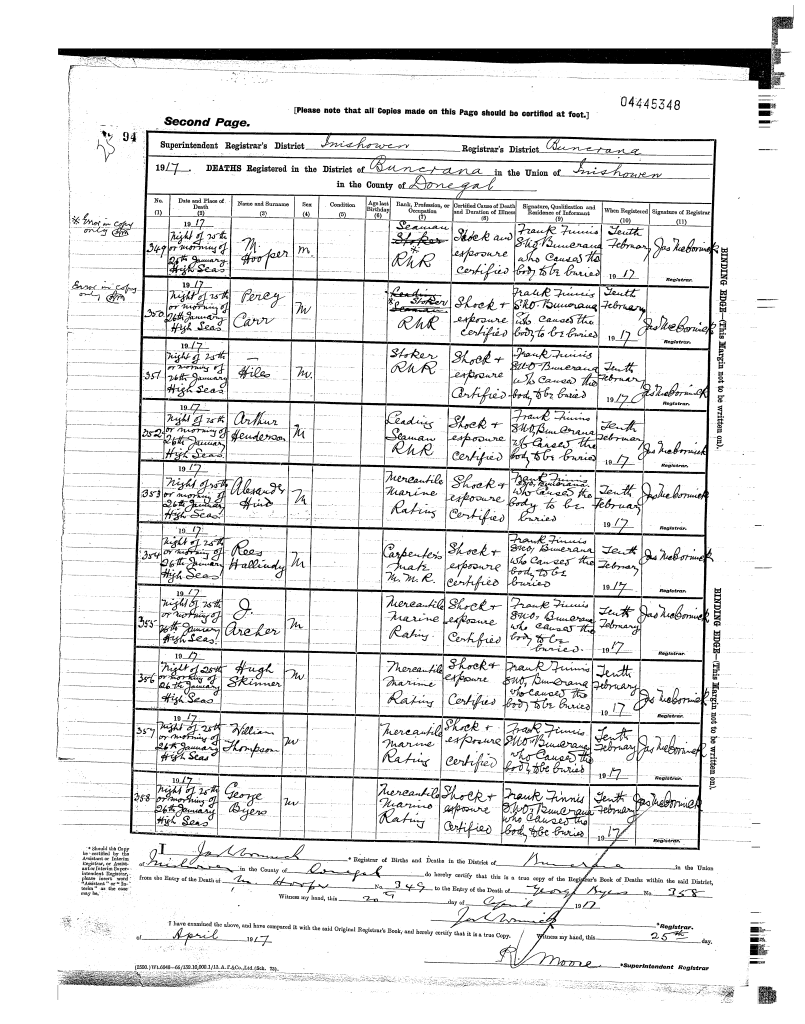 04445348
[Please note that all Copies made on this Page should be certified at foot.]
Second Page.
94
Superintendent Registrar's District Inishowen Registrar's District Buncrana
1917. DEATHS Registered in the District of Buncrana in the Union of Inishowen
in the County of Donegal
No. (1) Date and Place of Death (2) Name and Surname (3) Sex (4) Condition (5) Age last Birthday (6) Rank, Profession, or Occupation (7) Certified Cause of Death and Duration of Illness (8) Signature, Qualification and Residence of Informant (9) When Registered (10) Signature of Registrar (11)
* Error in copy only
349 1917 Night of 25th or morning of 26th January High Seas M. Hooper M. Seaman Stoker * RNR Shock and exposure certified Frank Finnis SNO Buncrana who caused the body to be buried Tenth February 1917 Jas McCormick Registrar.
Error in copy only
350 1917 Night of 25th or morning of 26th January High Seas Percy Carr M Leading * Stoker Seaman RNR Shock + exposure certified Frank Finnis SNO Buncrana who caused the body to be buried Tenth February 1917 Jas McCormick Registrar.
351 1917 Night of 25th or morning of 26th January High Seas — Hiles M. Stoker RNR Shock + exposure Certified Frank Finnis SNO Buncrana who caused the body to be buried Tenth February 1917 Jas McCormick Registrar.
352 1917 Night of 25th or morning of 26th January High Seas Arthur Henderson M Leading Seaman RNR Shock + exposure Certified Frank Finnis SNO, Buncrana who caused the body to be buried Tenth February 1917 Jas McCormick Registrar.
353 1917 Night of 25th or morning of 26th January High Seas Alexander Hind M Mercantile Marine Rating Shock + exposure Certified Frank Finnis SNO, Buncrana who caused the body to be buried Tenth February 1917 Jas McCormick Registrar.
354 1917 Night of 25th or morning of 26th January High Seas Rees Hallindy M Carpenters Mate M. M. R. Shock + exposure certified Frank Finnis SNO, Buncrana who caused the body to be buried Tenth February 1917 Jas McCormick Registrar.
355 1917 Night of 25th or morning of 26th January High Seas. J. Archer M Mercantile Marine Rating Shock + exposure Certified Frank Finnis SNO. Buncrana who caused the body to be buried. Tenth February 1917 Jas McCormick Registrar.
356 1917 Night of 25th or morning of 26th January High Seas Hugh Skinner M Mercantile Marine Rating Shock + exposure Certified Frank Finnis SNO. Buncrana who caused the body to be buried Tenth February 1917 Jas McCormick Registrar.
357 1917 Night of 25th or morning of 26th January High Seas William Thompson M Mercantile Marine Rating Shock + exposure certified Frank Finnis SNO Buncrana who caused the body to be buried Tenth February 1917 Jas McCormick Registrar.
358 1917 Night of 25th or morning of 26th January High Seas George Byers M Mercantile Marine Rating Shock + exposure Certified Frank Finnis SNO Buncrana who caused the body to be buried Tenth February 1917 Jas McCormick Registrar.
BINDING EDGE—This Margin not to be written on.
BINDING EDGE—This Margin not to be written on.
* Should the Copy be certified by the Assistant or Interim Registrar, or Assistant or Interim Superintendent Registrar, please insert word "Assistant" or "Interim" as the case may be.
I Jas McCormick * Registrar of Births and Deaths in the District of Buncrana in the Union
of Inishowen in the County of Donegal do hereby certify that this is a true copy of the Registrar's Book of Deaths within the said District,
from the Entry of the Death of M. Hooper No 349 to the Entry of the Death of George Byers No 358
Witness my hand, this 20th day of April 1917
Jas McCormick *Registrar.
I have examined the above, and have compared it with the said Original Registrar's Book, and hereby certify that it is a true Copy. Witness my hand, this 25th day.
of April 1917
R Moore *Superintendent Registrar